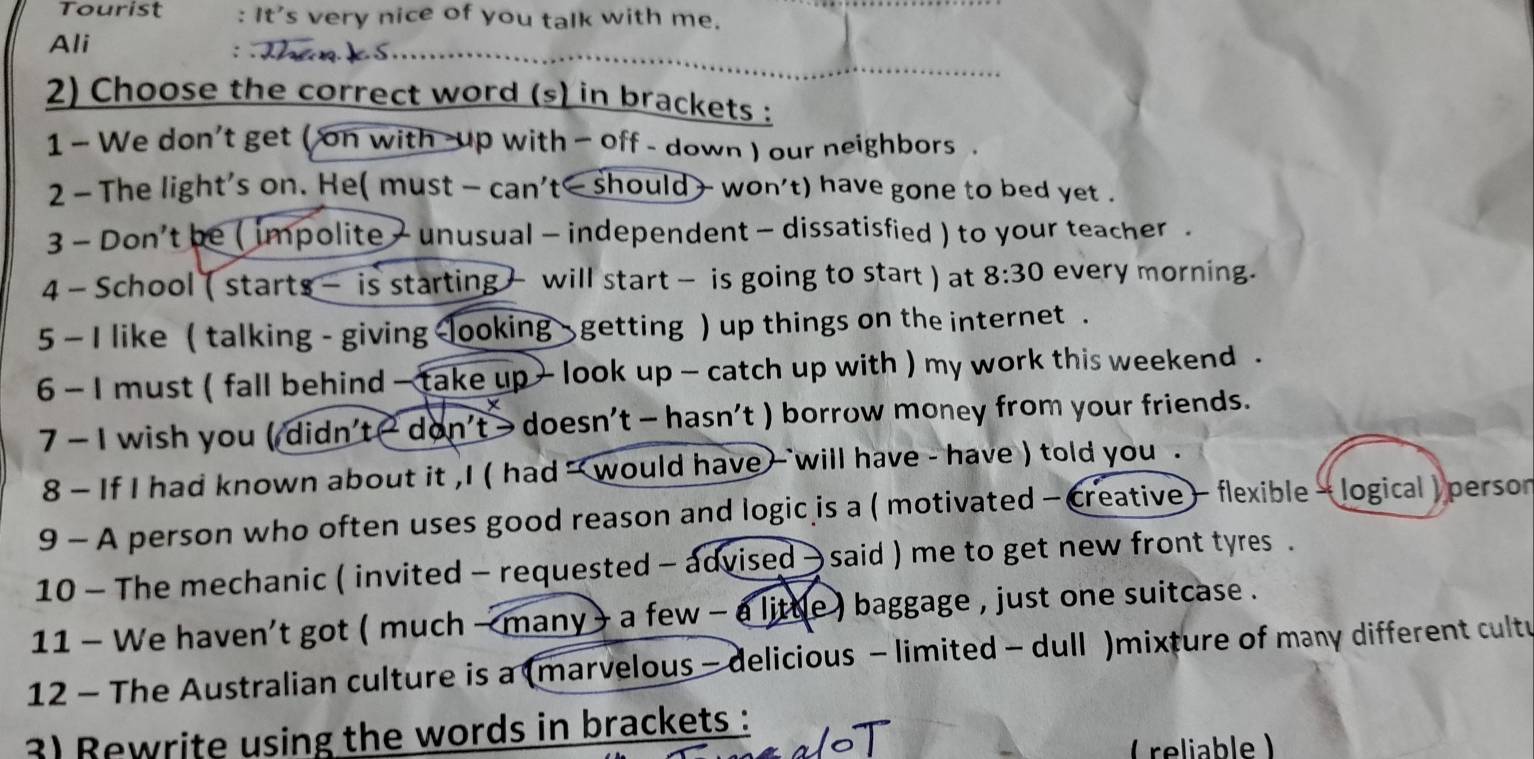 Tourist : It's very nice of you talk with me.
Ali : Thanks
2) Choose the correct word (s) in brackets :
1 – We don't get ( on with -up with – off - down ) our neighbors .
2 – The light's on. He( must – can't – should – won't) have gone to bed yet .
3 – Don't be ( impolite – unusual – independent – dissatisfied ) to your teacher .
4 – School ( starts – is starting – will start – is going to start ) at 8:30 every morning.
5 – I like ( talking - giving - looking - getting ) up things on the internet .
6 – I must ( fall behind – take up – look up – catch up with ) my work this weekend .
7 – I wish you ( didn't – don't – doesn't – hasn't ) borrow money from your friends.
8 – If I had known about it ,I ( had – would have – will have - have ) told you .
9 – A person who often uses good reason and logic is a ( motivated – creative – flexible – logical ) person
10 – The mechanic ( invited – requested – advised – said ) me to get new front tyres .
11 – We haven't got ( much – many – a few – a little ) baggage , just one suitcase .
12 – The Australian culture is a (marvelous – delicious – limited – dull )mixture of many different cultu
3) Rewrite using the words in brackets :
a loT
( reliable )